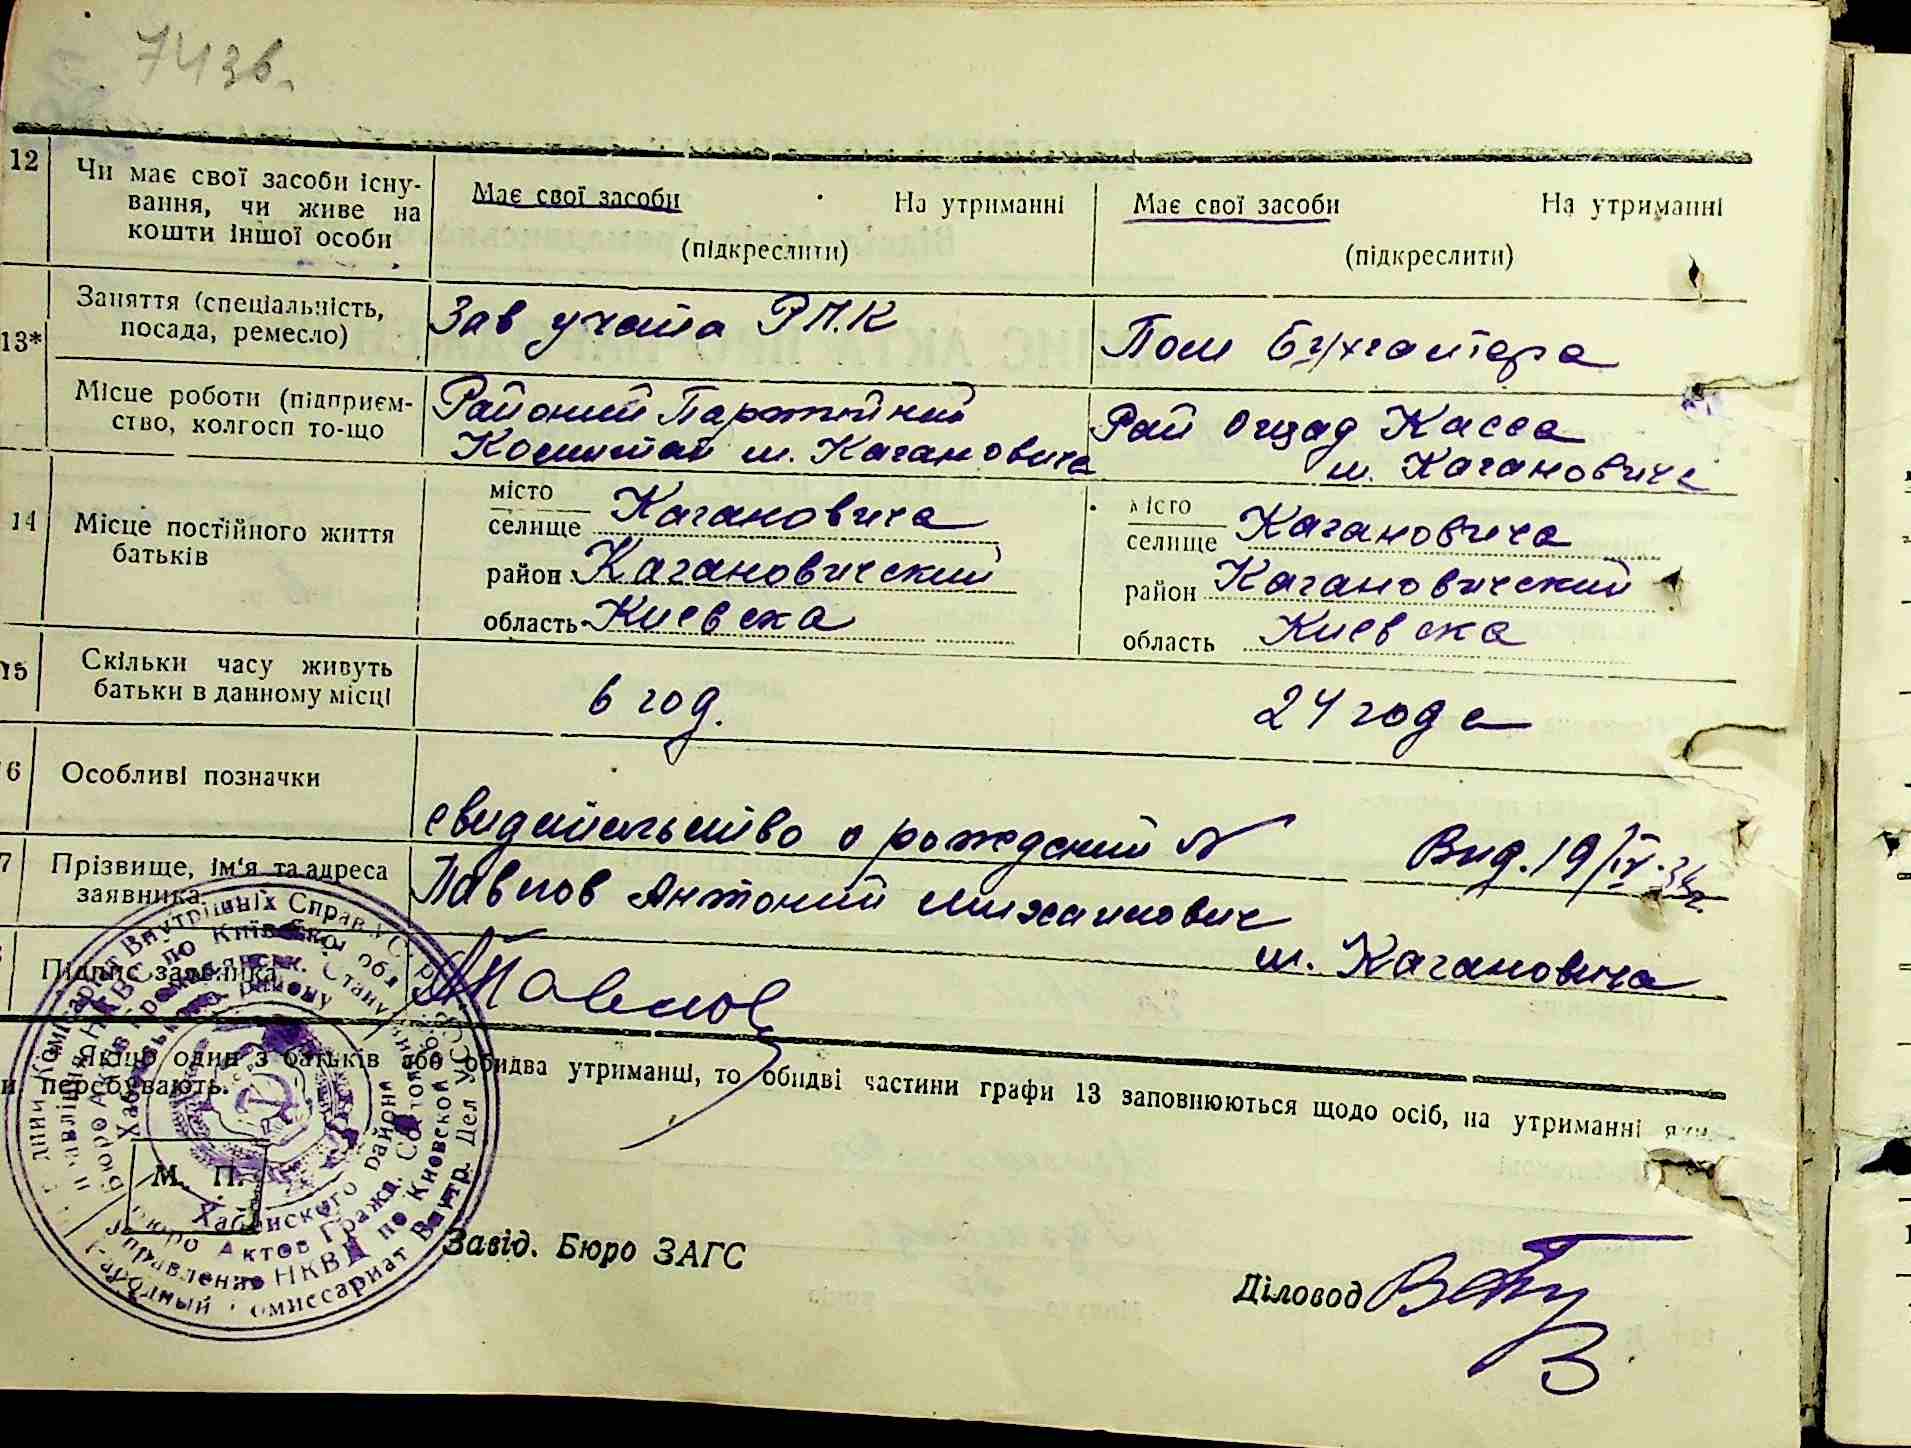 743в.
12
Чи має свої засоби існу-
вання, чи живе на
кошти іншої особи
Має свої засоби На утриманні
(підкреслити)
Має свої засоби На утриманні
(підкреслити)
13*
Заняття (спеціальність,
посада, ремесло)
Зав учота Р.П.К
Пом Бухгалтера
Місце роботи (підприєм-
ство, колгосп то-що
Районий Партійний
Комитет м. Кагановича
Рай Ощад Касса
м. Кагановича
14
Місце постійного життя
батьків
місто
селище Кагановича
район Кагановический
область Киевска
місто
селище Кагановича
район Кагановический
область Киевска
15
Скільки часу живуть
батьки в данному місці
6 год.
24 года
6
Особливі позначки
свидетельство о рождений № Вид. 19/IV-34г.
7
Прізвище, ім'я та адреса
заявника
Павлов Антоний Михайлович
м. Кагановича
Підпис заявника
АПавлов
Якщо один з батьків або обидва утриманці, то обидві частини графи 13 заповнюються щодо осіб, на утриманні яки
и перебувають.
М. П.
Хабенского района
Бюро Актов Гражд. Состояния
Управление НКВД по Киевской обл
Народный Комиссариат Внутр. Дел УССР
Завід. Бюро ЗАГС
Діловод